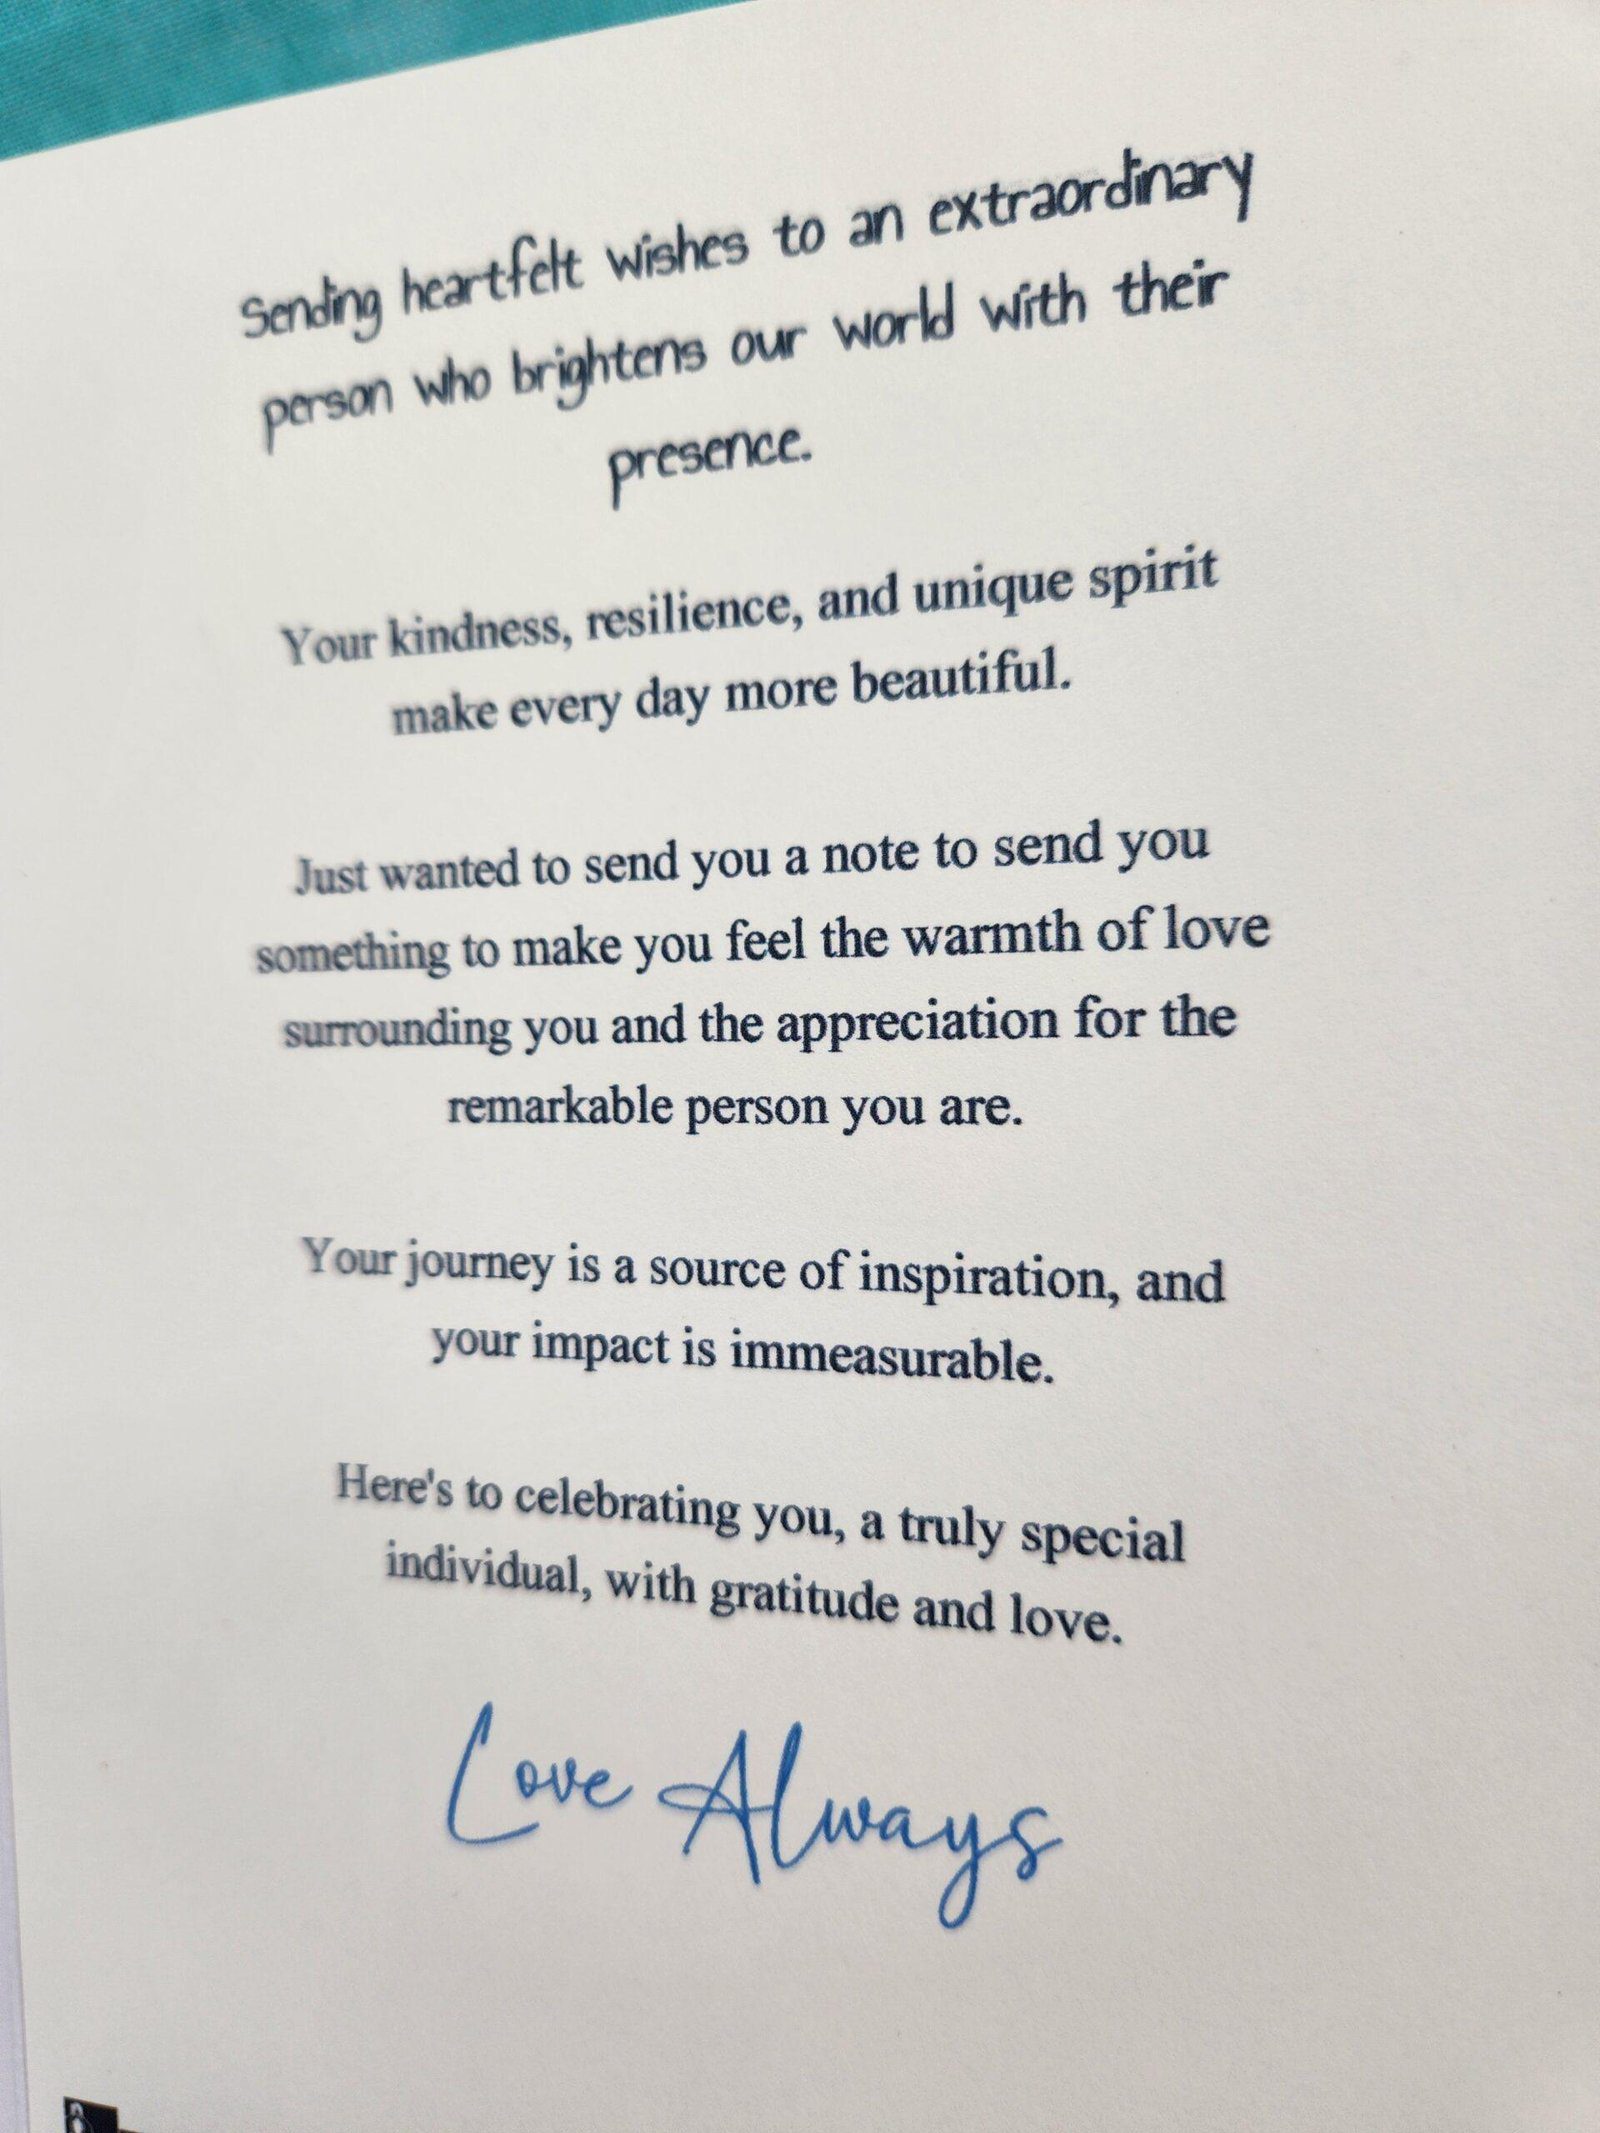 Sending heartfelt wishes to an extraordinary
person who brightens our world with their
presence.
Your kindness, resilience, and unique spirit
make every day more beautiful.
Just wanted to send you a note to send you
something to make you feel the warmth of love
surrounding you and the appreciation for the
remarkable person you are.
Your journey is a source of inspiration, and
your impact is immeasurable.
Here's to celebrating you, a truly special
individual, with gratitude and love.
Love Always